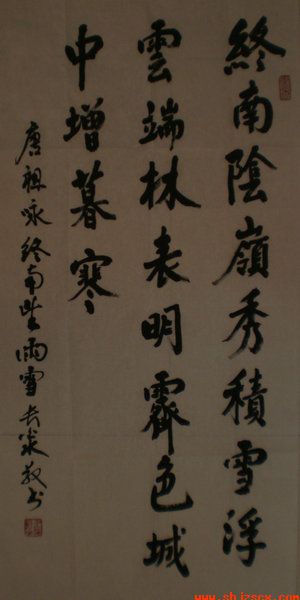 終南陰嶺秀積雪浮
雲端林表明霽色城
中增暮寒
唐祖咏终南望雨雪
www.shjzscx.com